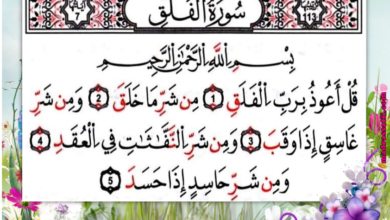 سورة الفلق
113
7
بِسْمِ اللَّهِ الرَّحْمَٰنِ الرَّحِيمِ
قُلْ أَعُوذُ بِرَبِّ الْفَلَقِ 1 مِن شَرِّ مَا خَلَقَ 2 وَمِن شَرِّ
غَاسِقٍ إِذَا وَقَبَ 3 وَمِن شَرِّ النَّفَّاثَاتِ فِي الْعُقَدِ 4
وَمِن شَرِّ حَاسِدٍ إِذَا حَسَدَ 5